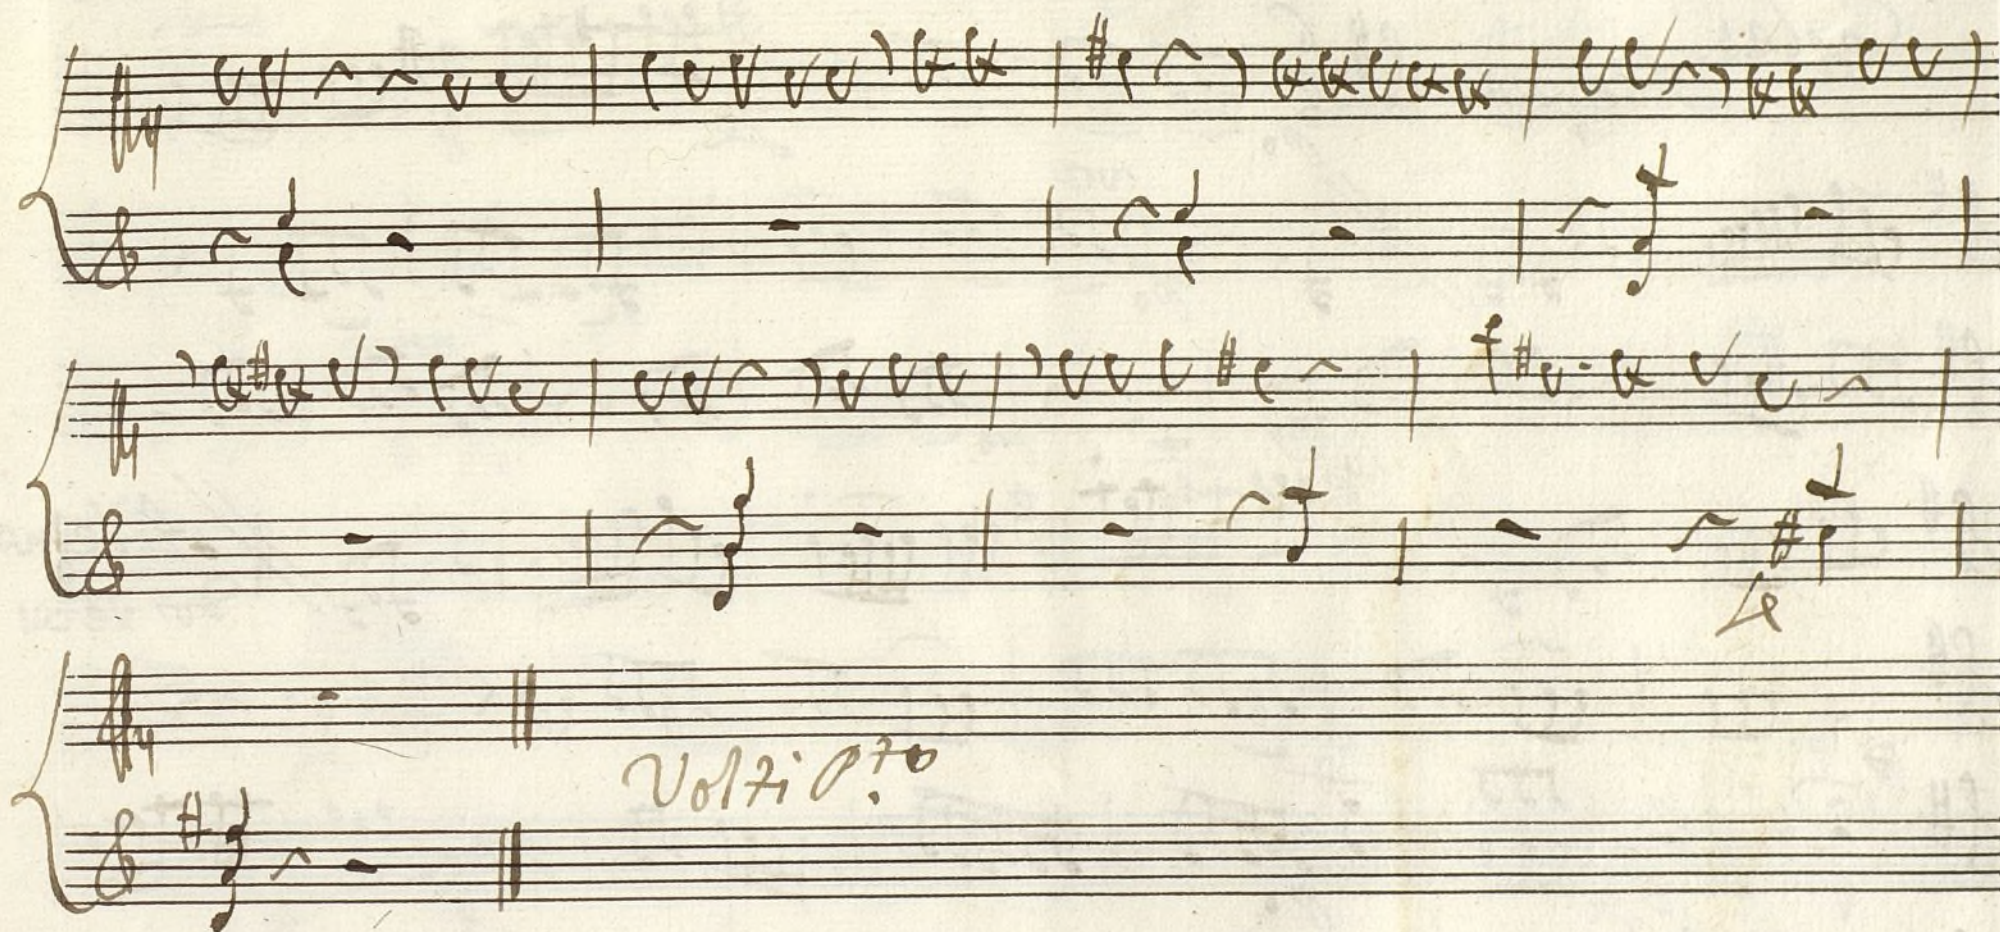 4
Volti p.to